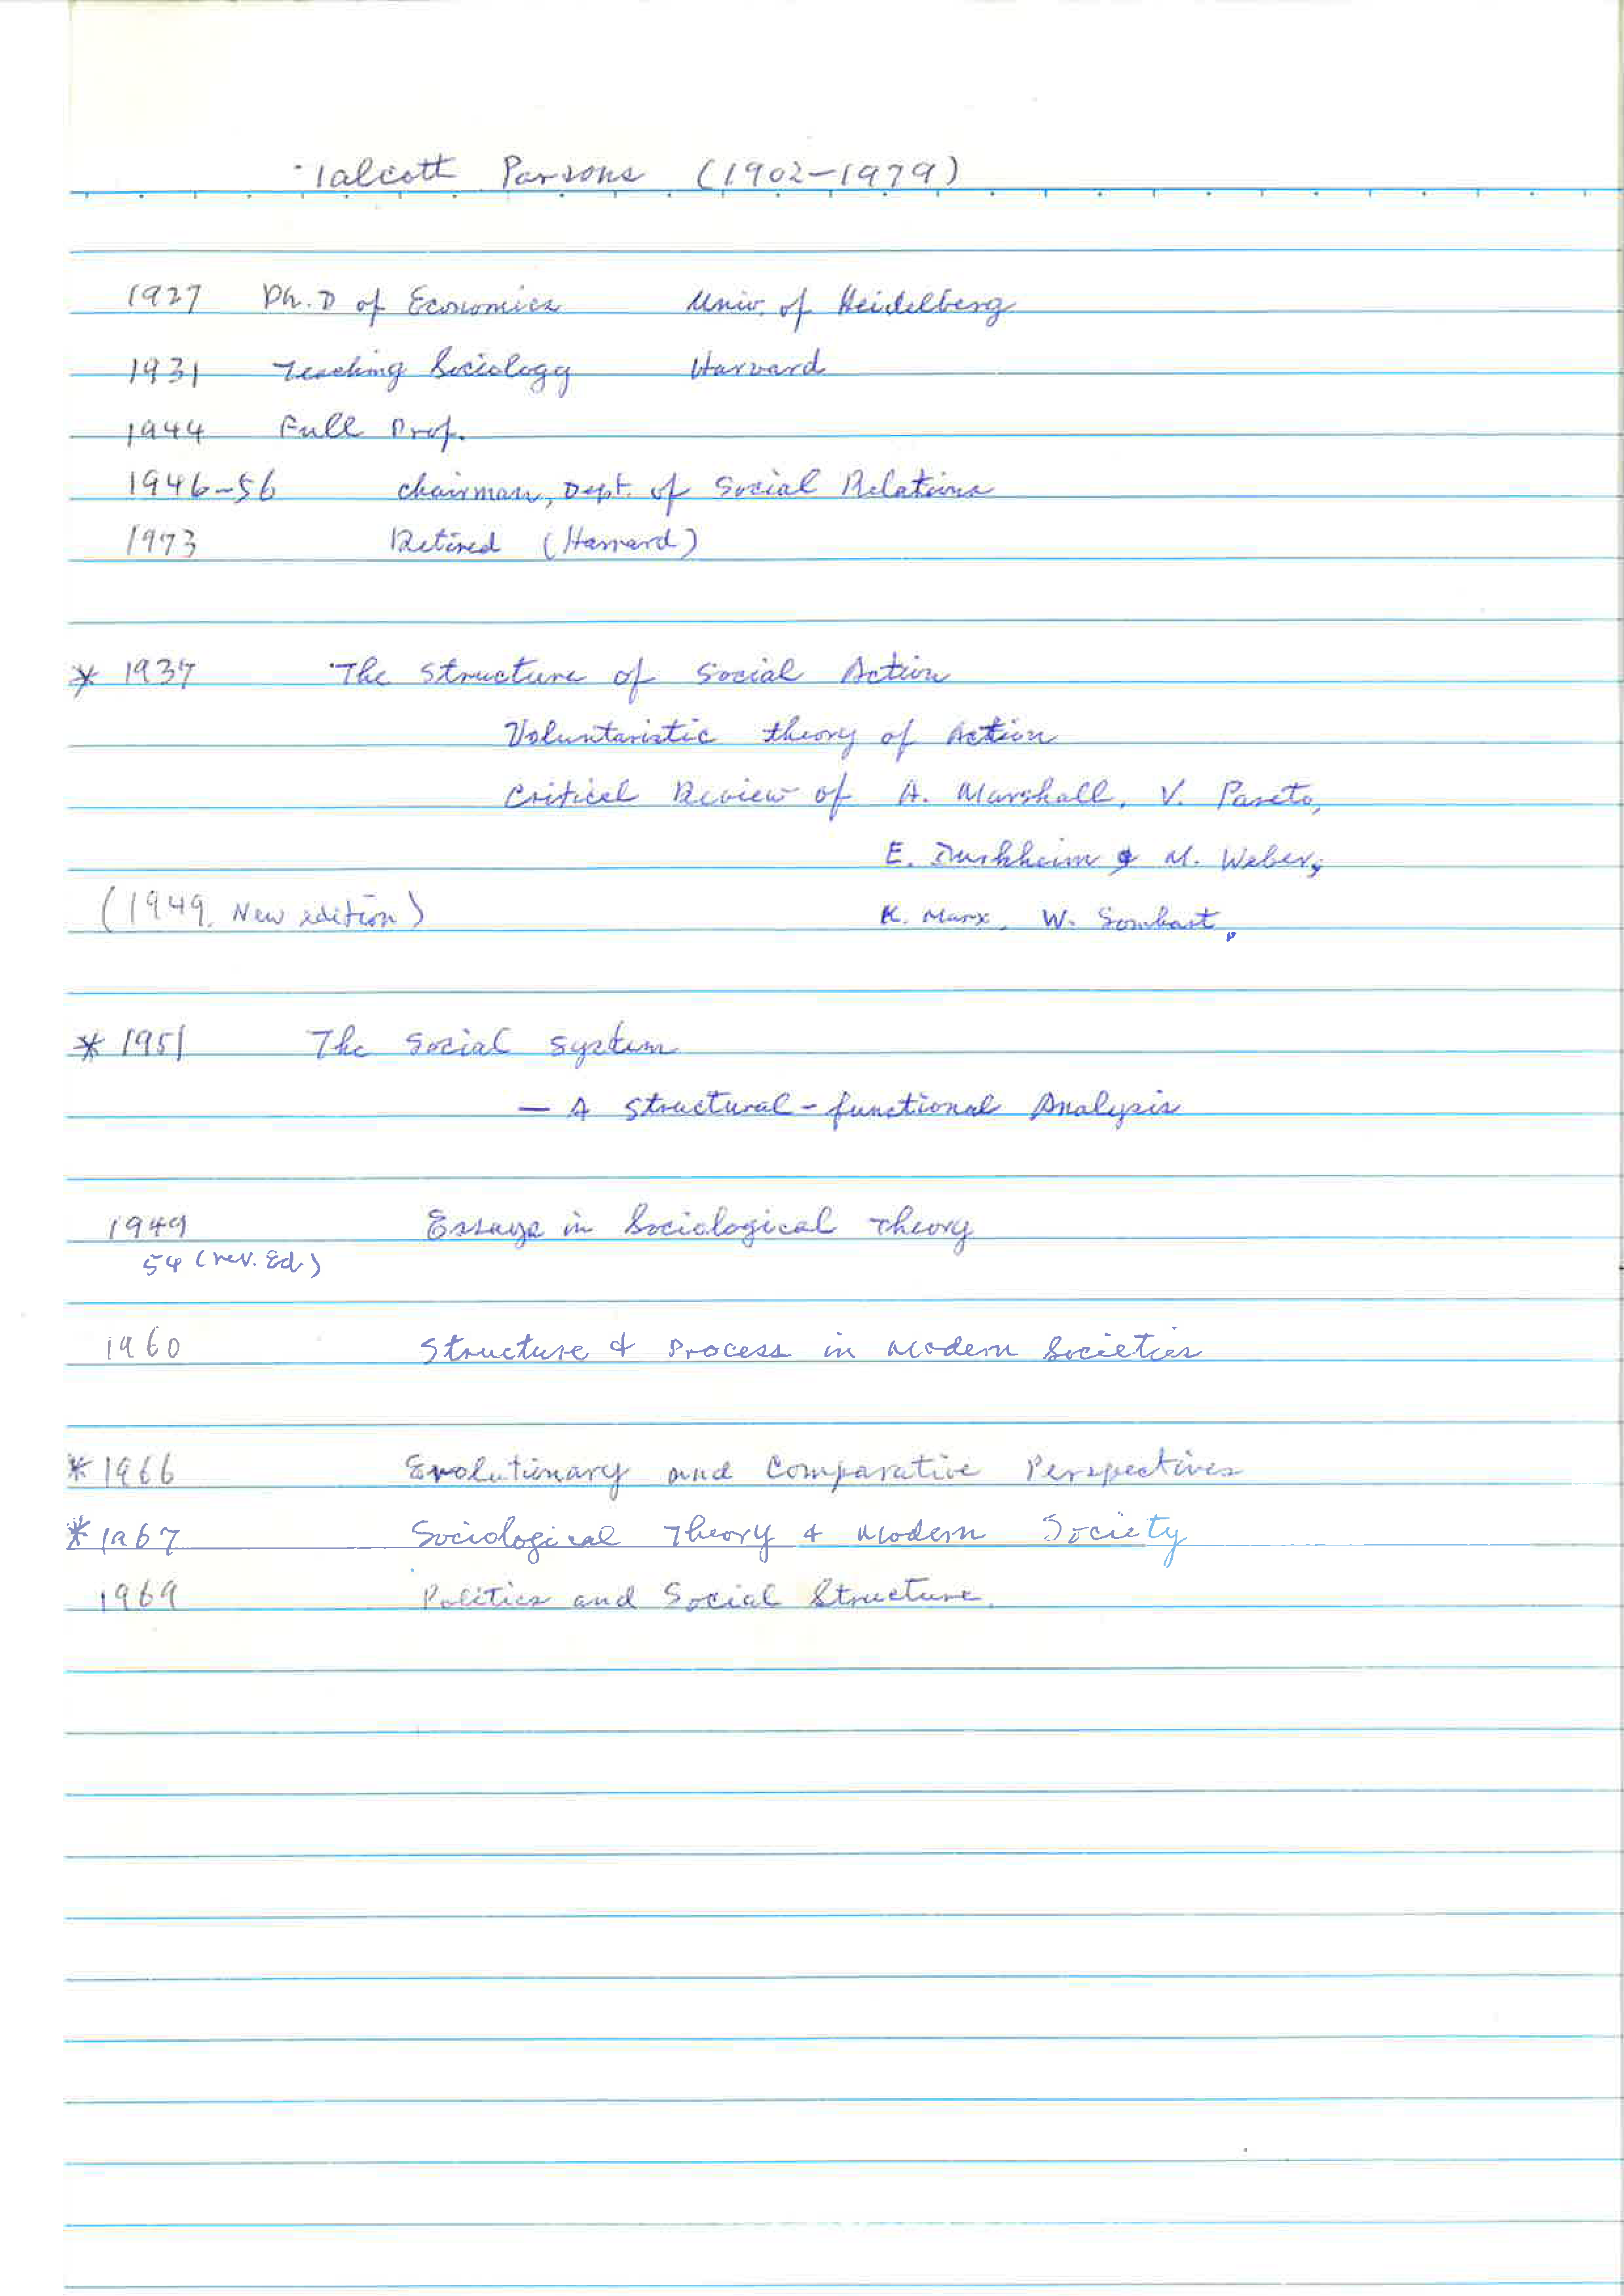 Talcott Parsons (1902-1979)
1927 Ph.D of Economics Univ. of Heidelberg
1931 Teaching Sociology Harvard
1944 Full Prof.
1946-56 chairman, Dept. of Social Relations
1973 Retired (Harvard)
* 1937 The Structure of Social Action
Voluntaristic theory of Action
Critical Review of A. Marshall, V. Pareto,
E. Durkheim & M. Weber,
(1949, New edition) K. Marx, W. Sombart.
* 1951 The Social System
— A Structural-functional Analysis
1949 Essays in Sociological Theory
54 (rev. Ed.)
1960 Structure & Process in Modern Societies
* 1966 Evolutionary and Comparative Perspectives
* 1967 Sociological Theory & Modern Society
1969 Politics and Social Structure.